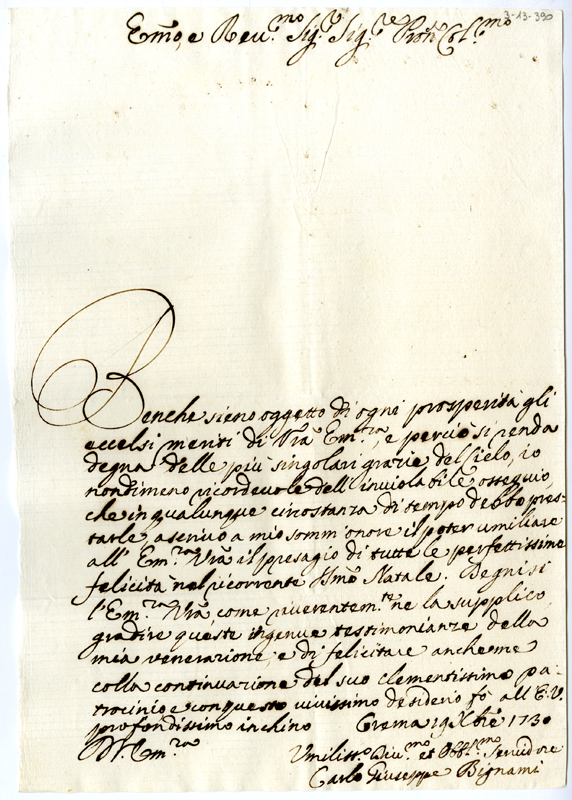 3-13-390
Em̃o, e Reu.mo Sig.r Sig.re Pron Col.mo
Benche sieno oggetto di ogni prosperità gli
eccelsi meriti di Vr̃a Em.ra, e perciò si renda
degna delle più singolari grazie del Cielo, io
nondimeno ricordevole dell'inviolabile ossequio,
che in qualunque circostanza di tempo debbo pres-
tarle ascrivo a mio somm'onore il poter umiliare
all'Em.ra Vr̃a il presagio di tutte le perfettissime
felicità nel ricorrente Ss̃mo Natale. Degnisi
l'Em.ra Vr̃a, come riverentem.te ne la supplico,
gradire queste ingenue testimonianze della
mia venerazione, e di felicitare ancherme
colla continuazione del suo clementissimo pa-
trocinio, e con questo vivissimo desiderio fò all'E.V.
profondissimo inchino Crema 19 Xbre 1730
D. V. Em.ra
Vmiliss.o Diu.mo et Obb.mo Servidore
Carlo Giuseppe Bignami